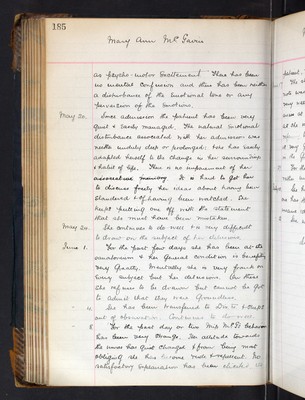 185
Mary Ann McGavin
as psycho-motor excitement. There has been
no mental confusion and there has been neither
a disturbance of the emotional tone or any
perversion of the emotions.
May 20. Since admission the patient has been very
quiet & easily managed. The natural emotional
disturbance associated with her admission was
neither unduly deep or prolonged: she has easily
adapted herself to the change in her surroundings
& habit of life. There is no impairment of her
associative memory. It is hard to get her
to discuss freely her ideas about having been
slandered & of having been watched. She
kept putting one off with the statement
that she must have been mistaken.
May 30. She continues to do well & is very difficult
to draw on the subject of her delusions.
June 1. For the past few days she has been at the
sanatorium & her general condition is benefiting
very greatly. Mentally she is very frank on
every subject but her delusions. On these
she refuses to be drawn but cannot be got
to admit that they were groundless.
4. She has been transferred to
of observation. Continues to do well.
8 For the past day or two Miss McG's behaviour
has been very strange. Her attitude towards
the nurses has quite changed & from being most
obliging she has become rude & insolent. No
satisfactory explanation has been